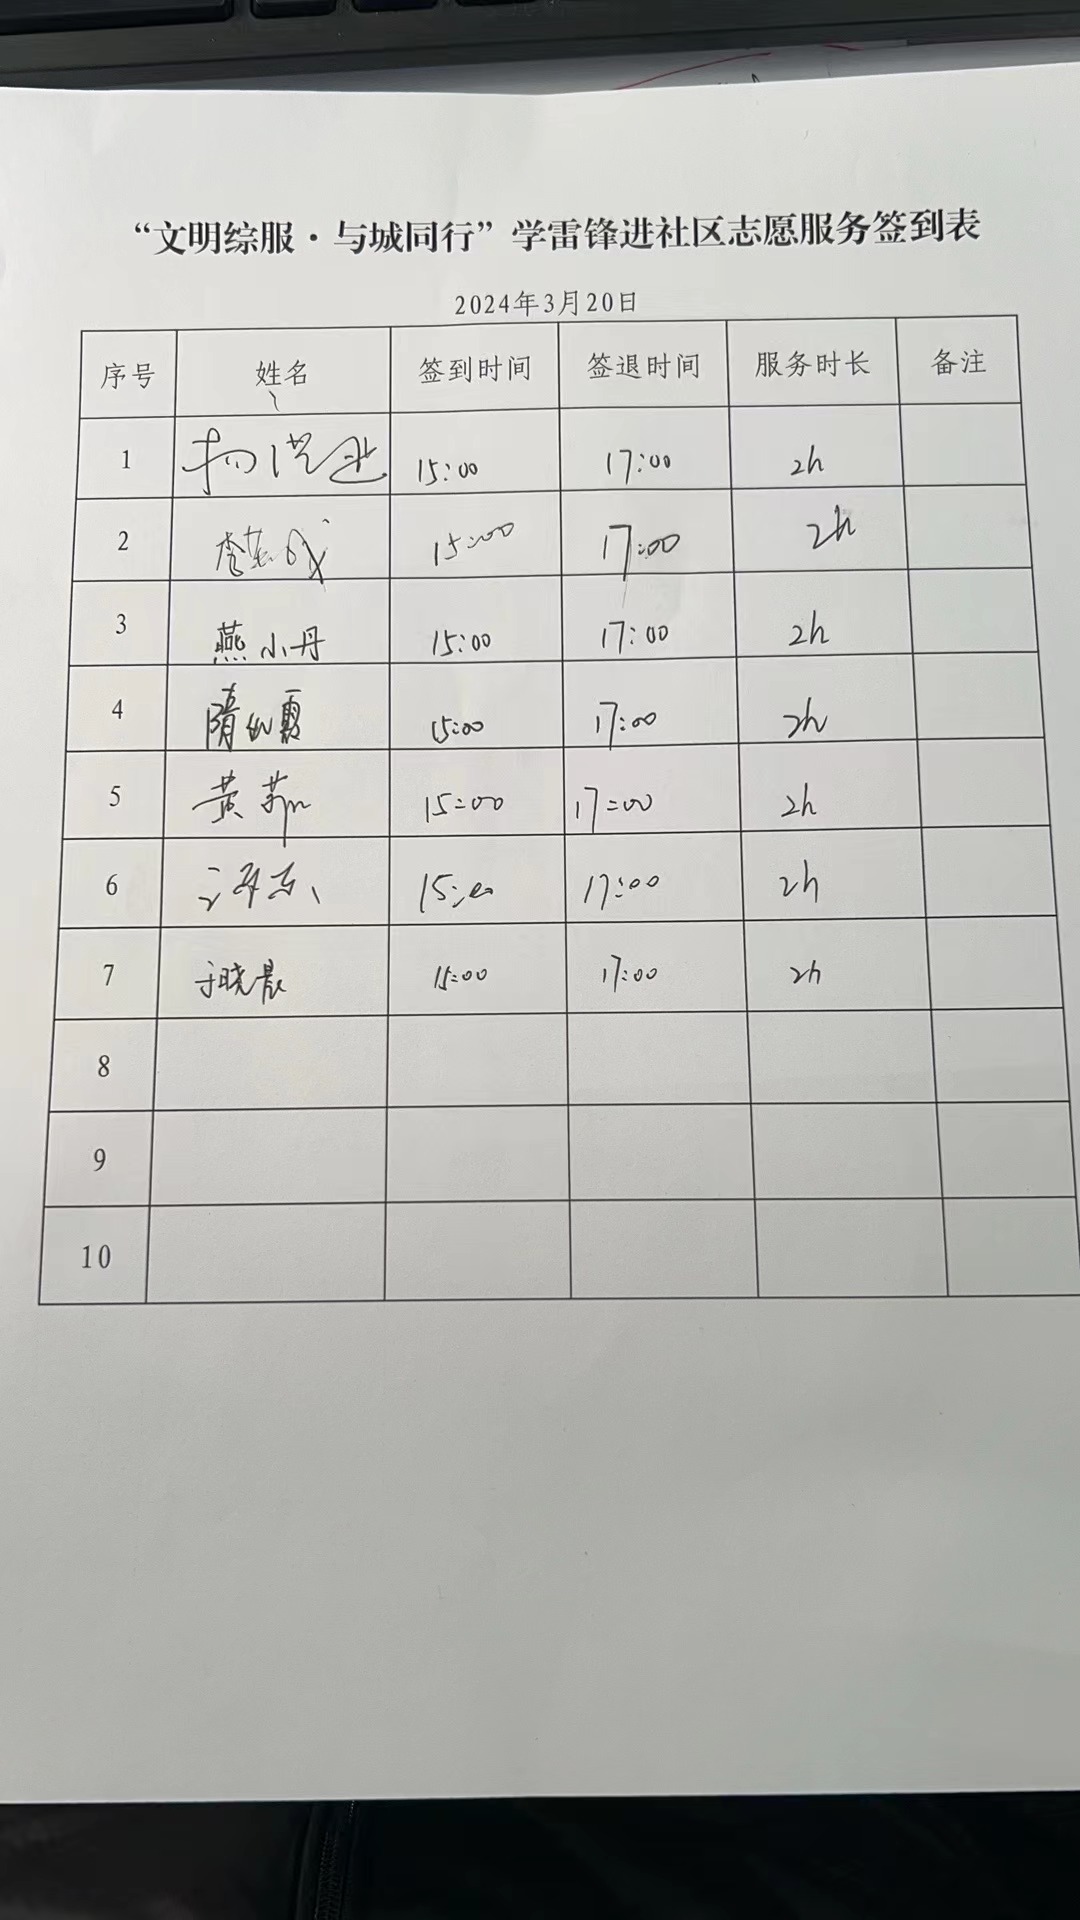 “文明综服·与城同行”学雷锋进社区志愿服务签到表
2024年3月20日
序号 姓名 签到时间 签退时间 服务时长 备注
1 15:00 17:00 2h
2 15:00 17:00 2h
3 燕小丹 15:00 17:00 2h
4 15:00 17:00 2h
5 黄 15:00 17:00 2h
6 15:00 17:00 2h
7 于晓晨 15:00 17:00 2h
8
9
10